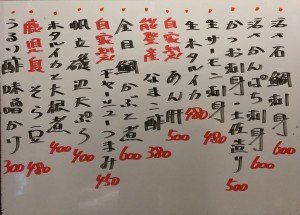 活〆石鯛刺身 600
かんぱち刺身
かつお刺身・土佐造り 500
生サーモン刺身 480
生ホタルイカ 480
自家製 あん肝 500
能登産 なまこ酢 380
金目鯛かぶと煮 600
自家製 チャーシューつまみ 450
帆立磯辺天ぷら 400
ホタルイカと大根煮 400
そら豆 480
うるり酢味噌がけ 300